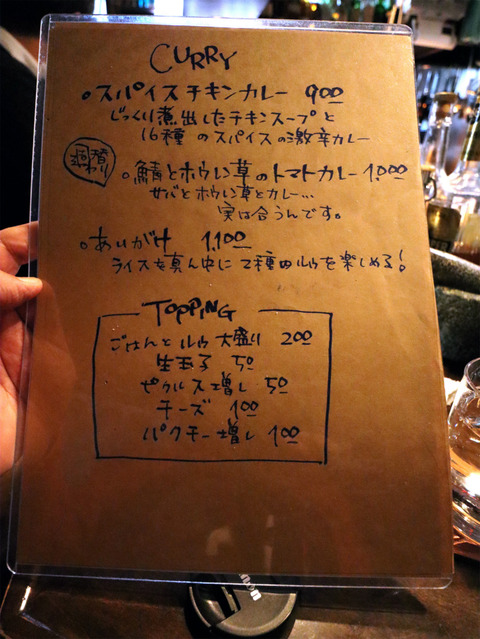 CURRY
・スパイスチキンカレー 900
じっくり煮出したチキンスープと
16種のスパイスの激辛カレー
週替わり
・鯖とホウレン草のトマトカレー 1,000
サバとホウレン草とカレー…
実は合うんです。
・あいがけ 1,100
ライスを真ん中に2種のルゥを楽しめる！
TOPPING
ごはんとルゥ大盛り 200
生玉子 50
ピクルス増し 50
チーズ 100
パクチー増し 100